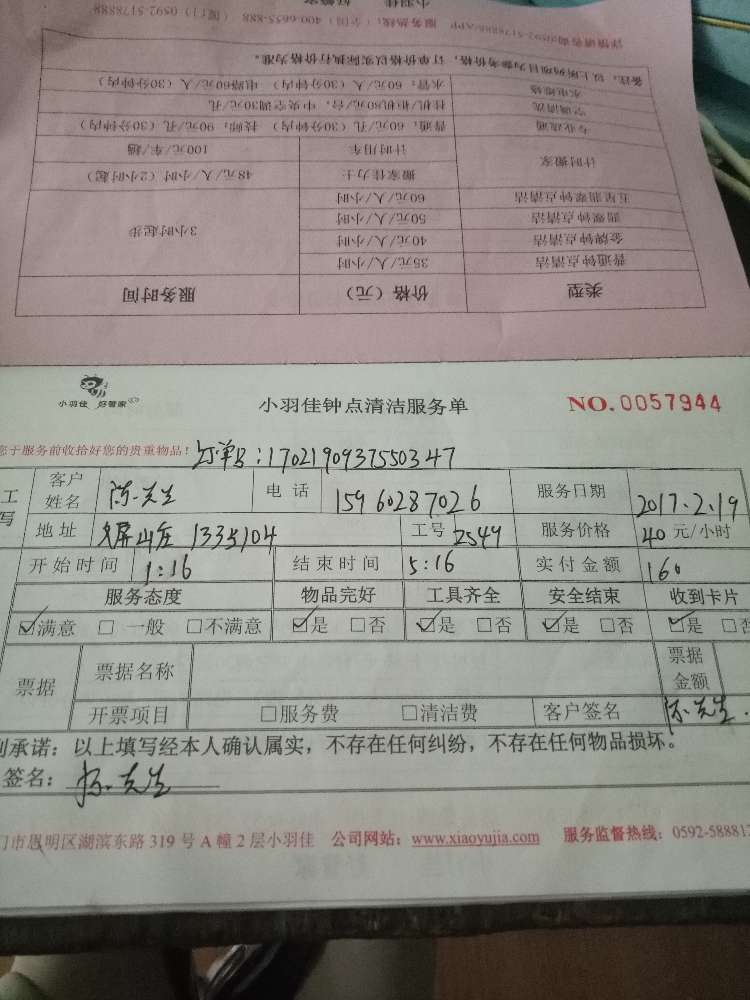 类型 价格（元） 服务时间
普通钟点清洁 35元/人/小时 3小时起步
金牌钟点清洁 40元/人/小时
翡翠钟点清洁 50元/人/小时
五星翡翠钟点清洁 60元/人/小时
计时搬家 搬家佳力士 48元/人/小时（2小时起）
计时用车 100元/车/趟
专业疏通 普通：60元/孔（30分钟内） 技师：90元/孔（30分钟内）
空调清洗 挂机/柜机80元/台，中央空调30元/孔
水电维修 水管：60元/人（30分钟内） 电路60元/人（30分钟内）
备注：以上所列项目为参考价格，订单价格以实际执行价格为准。
详情请咨询0592-5178888/APP 服务热线：（全国）400-6655-888（厦门）0592-5178888
小羽佳 好管家
小羽佳 好管家
小羽佳钟点清洁服务单 NO.0057944
您于服务前收拾好您的贵重物品！ 订单号：17021909375503 47
工写 客户姓名 陈先生 电话 15960287026 服务日期 2017.2.19
地址 文屏山庄 133号104 工号 2549 服务价格 40 元/小时
开始时间 1:16 结束时间 5:16 实付金额 160
服务态度 物品完好 工具齐全 安全结束 收到卡片
☑满意 □一般 □不满意 ☑是 □否 ☑是 □否 ☑是 □否 ☑是 □否
票据 票据名称 票据金额
开票项目 □服务费 □清洁费 客户签名 陈先生
承诺：以上填写经本人确认属实，不存在任何纠纷，不存在任何物品损坏。
签名：陈先生
门市思明区湖滨东路 319 号 A 幢 2 层小羽佳 公司网站：www.xiaoyujia.com 服务监督热线：0592-588812